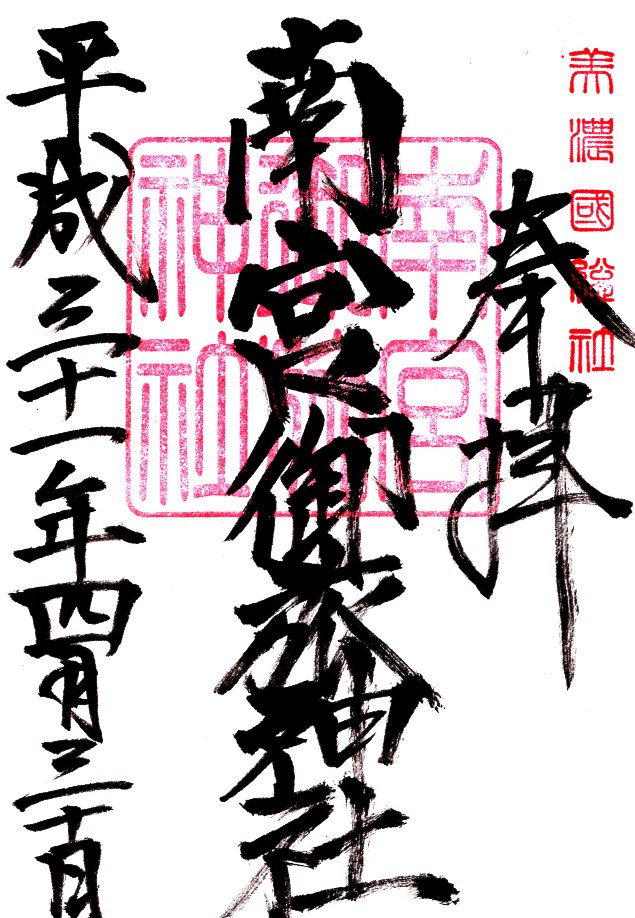 美濃國総社
奉拝
南宮御旅神社
南宮
御旅
神社
平成三十一年四月三十日